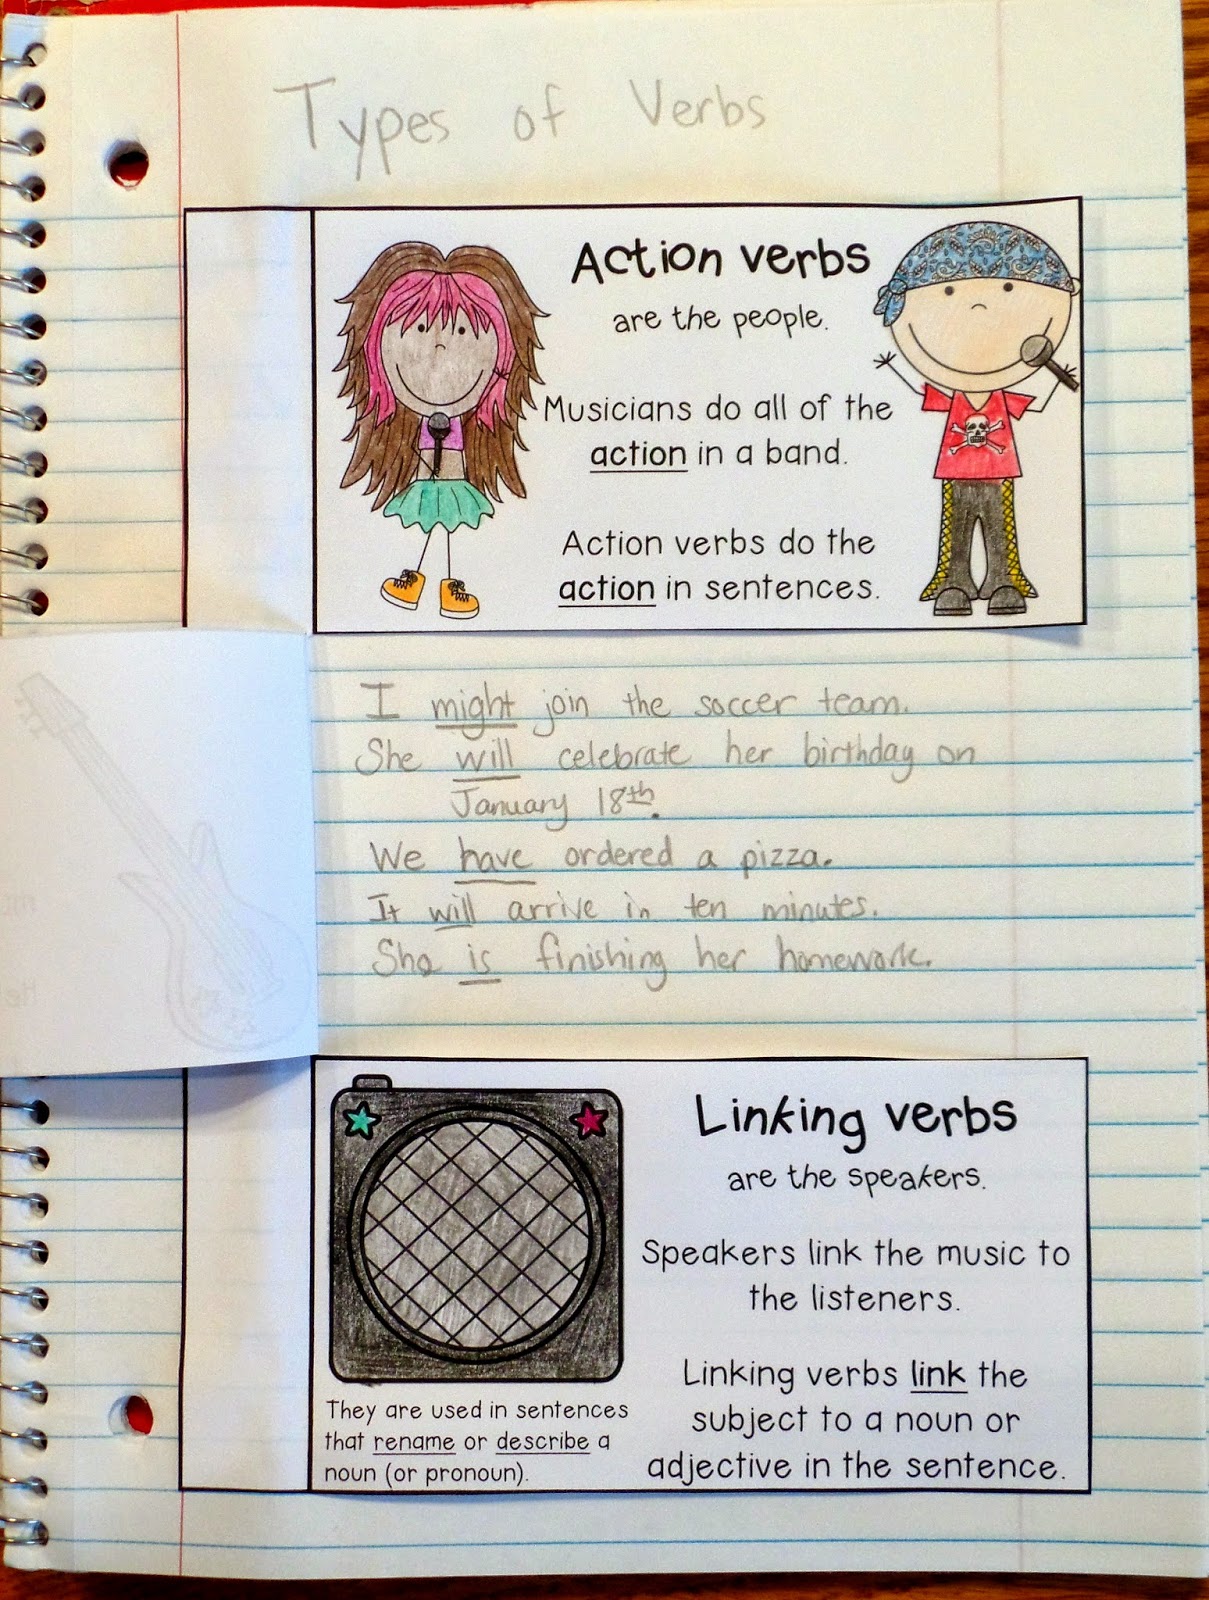 Types of Verbs
Action verbs
are the people.
Musicians do all of the
action in a band.
Action verbs do the
action in sentences.
I might join the soccer team.
She will celebrate her birthday on
January 18th.
We have ordered a pizza.
It will arrive in ten minutes.
She is finishing her homework.
Linking verbs
are the speakers.
Speakers link the music to
the listeners.
Linking verbs link the
subject to a noun or
adjective in the sentence.
They are used in sentences
that rename or describe a
noun (or pronoun).